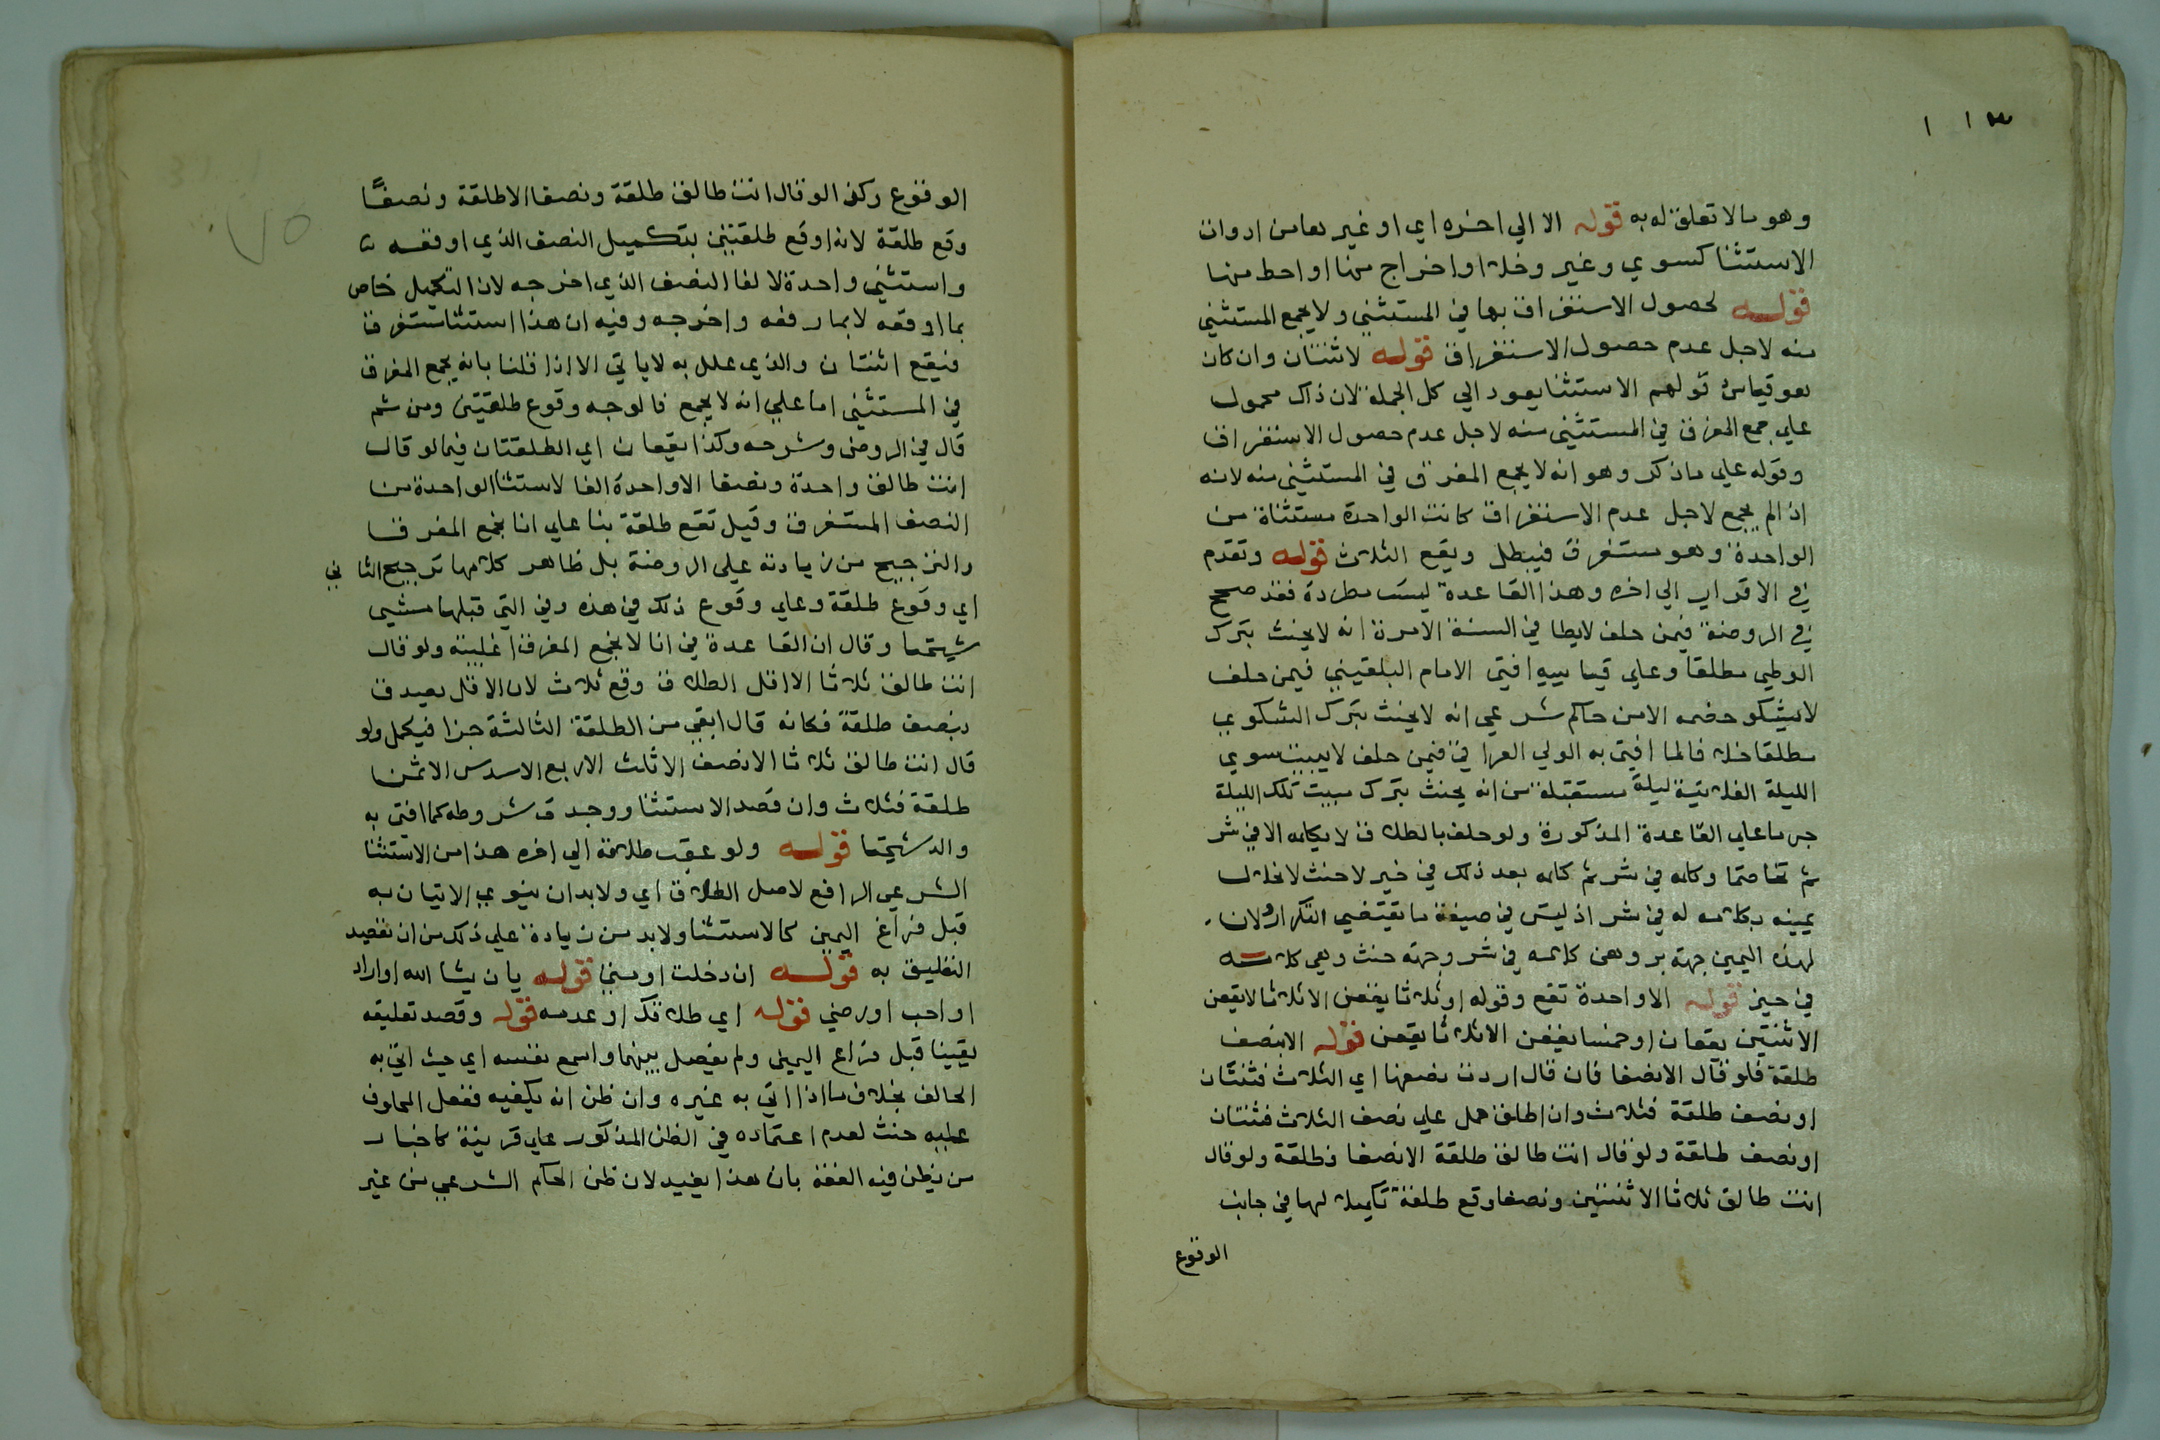 ١١٣
وهو مالا تعلق له به قوله الا الي اخره اي او غيرها من ادوات
الاستثنا كسوي وغير وخلا او اخراج منها او احط منها
قوله لحصول الاستغراق بها في المستثني ولا يجمع المستثني
منه لاجل عدم حصول الاستغراق قوله لاثنتان وان كان
هو قياس قولهم الاستثنا يعود الي كل الجملة لان ذاك محمول
علي جمع المفرق في المستثني منه لاجل عدم حصول الاستغراق
وقوله علي ما ذكر وهو انه لا يجمع المفرق في المستثني منه لانه
اذا لم يجمع لاجل عدم الاستغراق كانت الواحدة مستثناة من
الواحدة وهو مستغرق فيبطل ويقع الثلاث قوله وتقدم
في الاقرار الي اخره وهذا القاعدة ليست مطردة فقد صحح
في الروضة فيمن حلف لايطا في السنة الا مرة انه لا يحنث بترك
الوطي مطلقا وعلي قياسه افتي الامام البلقيني فيمن حلف
لايشكو خصمه الا من حاكم شرعي انه لا يحنث بترك الشكوي
مطلقا خلافا لما افتي به الولي العراقي فيمن حلف لا يبيت سوي
الليلة الفلانية ليلة مستقبلة من انه يحنث بترك مبيت تلك الليلة
جريا علي القاعدة المذكورة ولو حلف بالطلاق لا يكلمه الا في شر
ثم تخاصما وكلمه في شر ثم كلمه بعد ذلك في خير لا حنث لانحلال
يمينه بكلامه له في شر اذ ليس في صيغة ما يقتضي التكرار ولان
لهذه اليمين جهة بر وهي كلامه في شر وجهة حنث وهي كلامه
في خير قوله الا واحدة تقع وقوله او ثلاثا يقعن الا ثلاثا لا يقعن
الا ثنتين يقعان او خمسا يقعن الا ثلاثا يقعن قوله الا نصف
طلقة فلو قال الا نصفا فان قال اردت نصفها اي الثلاث فثنتان
او نصف طلقة فثلاث وان اطلق حمل علي نصف الثلاث فثنتان
او نصف طلقة ولو قال انت طالق طلقة الا نصفا فطلقة ولو قال
انت طالق ثلاثا الا ثنتين ونصفا وقع طلقة تكميلا لها في جانب
الوقوع
الوقوع ركن الو قال انت طالق طلقة ونصفا الا طلقة ونصفًا
وقع طلقة لانه اوقع طلقتين بتكميل النصف الذي اوقعه
واستثني واحدة لالغا النصف الذي اخرجه لان التكميل خاص
بما اوقعه لا بما رفعه واخرجه وفيه ان هذا استثنا مستغرق
فيقع اثنتان والذي علل به لا ياتي الا اذا قلنا بانه يجمع المفرق
في المستثني اما علي انه لا يجمع فالوجه وقوع طلقتين ومن ثم
قال في الروض وشرحه وكذا يقعان اي الطلقتان فيما لو قال
انت طالق واحدة ونصفا الا واحدة الغا لاستثنا الواحدة من
النصف المستغرق وقيل تقع طلقة بنا علي انا نجمع المفرق
والترجيح من زيادته علي الروضة بل ظاهر كلامها ترجيح الثاني
اي وقوع طلقة وعلي وقوع ذلك في هذه وفي التي قبلها مشي
شيخنا وقال ان القاعدة في انا لا نجمع المفرق اغلبية ولو قال
انت طالق ثلاثا الا اقل الطلاق وقع ثلاث لان الاقل يصدق
بنصف طلقة فكانه قال ابقي من الطلقة الثالثة جزا فيكمل ولو
قال انت طالق ثلاثا الا نصف الا ثلث الا ربع الا سدس الا ثمن
طلقة فثلاث وان قصد الاستثنا ووجدت شروطه كما افتي به
والد شيخنا قوله ولو عقب طلاقه الي اخره هذا من الاستثنا
الشرعي الرافع لاصل الطلاق اي ولا بد ان ينوي الاتيان به
قبل فراغ اليمين كالاستثنا ولا بد من زيادة علي ذلك من ان يقصد
التعليق به قوله ان دخلت او متي قوله بان يشا الله او اراد
او احب او رضي قوله اي طلاقك او عدمه قوله وقصد تعليقه
يقينا قبل فراغ اليمين ولم يفصل بينهما واسمع نفسه اي حيث اتي به
الحالف بخلاف ما اذا اتي به غيره وان ظن انه يكفيه ففعل المحلوف
عليه حنث لعدم اعتماده في الظن المذكور علي قرينة كاخبار
من يظن فيه الفقه بان هذا يفيد لان ظن الحكم الشرعي من غير